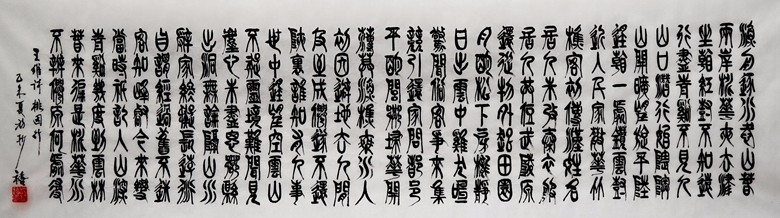 漁舟逐水愛山春
兩岸桃花夾去津
坐看紅樹不知遠
行盡青溪不見人
山口潛行始隈隩
山開曠望旋平陸
遙看一處攢雲樹
近入千家散花竹
樵客初傳漢姓名
居人未改秦衣服
居人共住武陵源
還從物外起田園
月明松下房櫳靜
日出雲中雞犬喧
驚聞俗客爭來集
競引還家問都邑
平明閭巷掃花開
薄暮漁樵乘水入
初因避地去人間
及至成僊遂不還
峽裏誰知有人事
世中遙望空雲山
不疑靈境難聞見
塵心未盡思鄉縣
出洞無論隔山水
辭家終擬長游衍
自謂經過舊不迷
安知峰壑今來變
當時只記入山深
青溪幾度到雲林
春來遍是桃花水
不辨僊源何處尋
王維詩桃園行
乙未夏